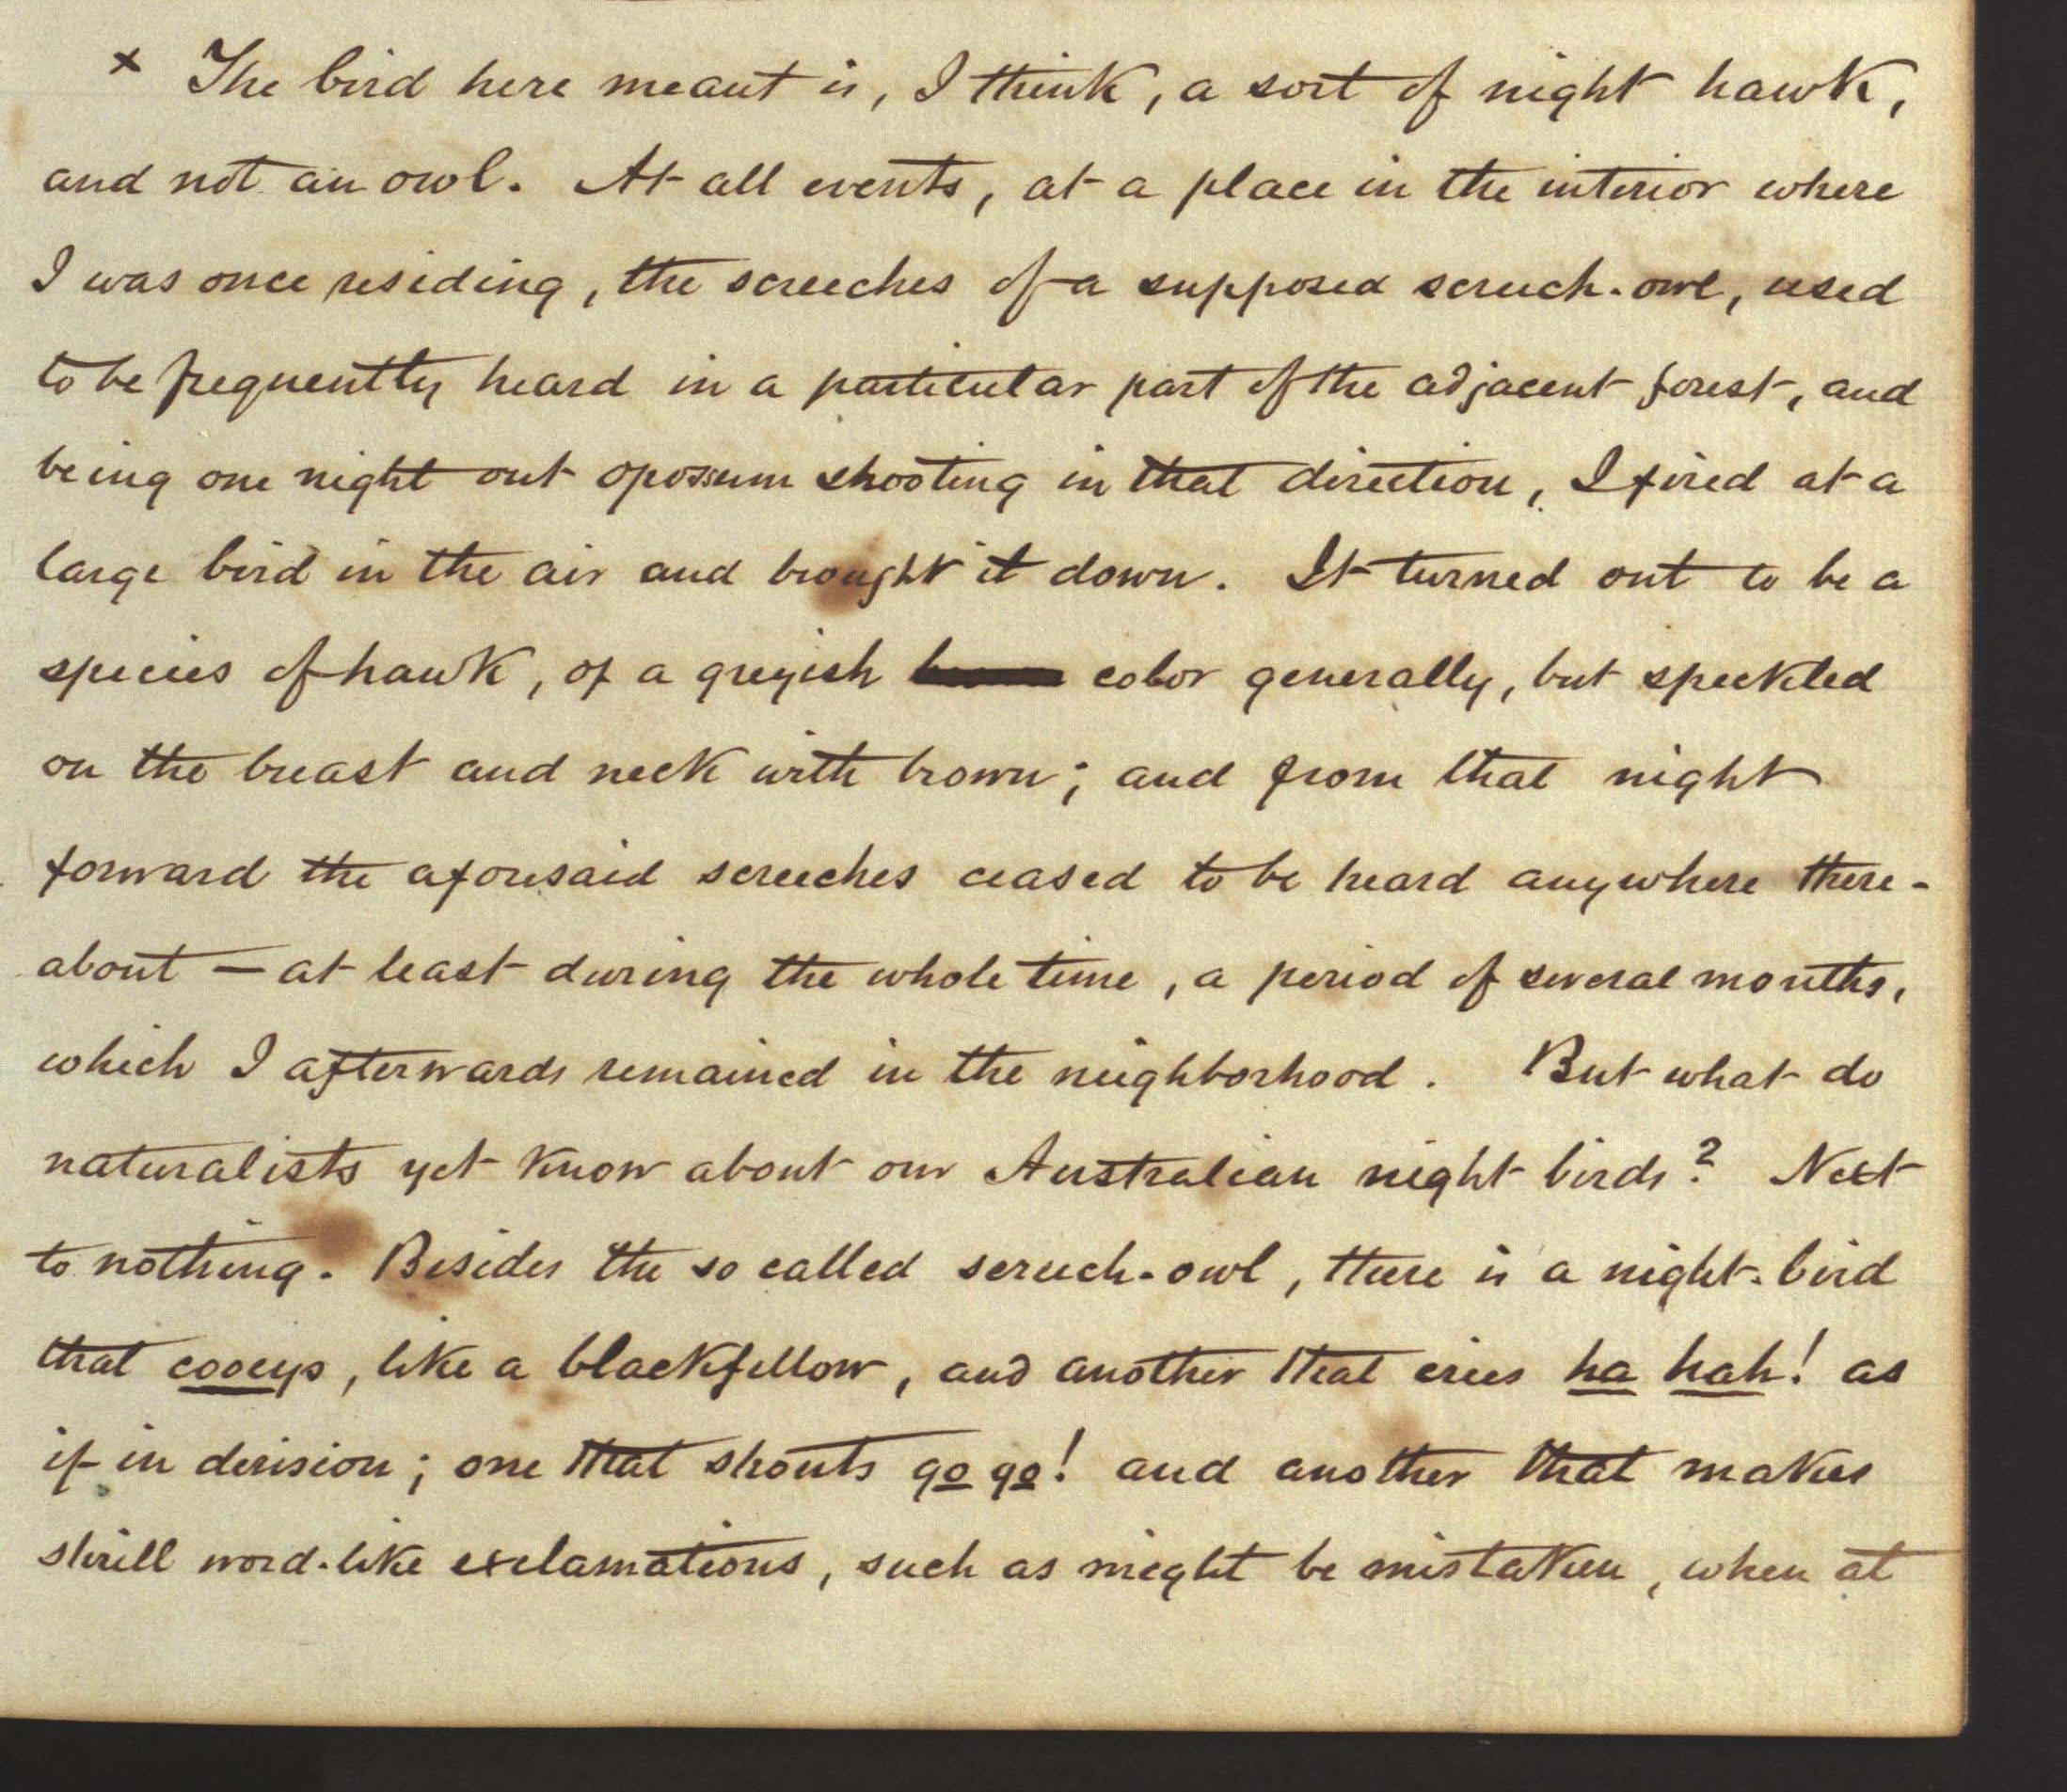 × The bird here meant is, I think, a sort of night hawk,
and not an owl. At all events, at a place in the interior where
I was once residing, the screeches of a supposed screech-owl, used
to be frequently heard in a particular part of the adjacent forest, and
being one night out opossum shooting in that direction, I fired at a
large bird in the air and brought it down. It turned out to be a
species of hawk, of a greyish color generally, but speckled
on the breast and neck with brown; and from that night
forward the aforesaid screeches ceased to be heard anywhere there-
about — at least during the whole time, a period of several months,
which I afterwards remained in the neighborhood. But what do
naturalists yet know about our Australian night birds? Next
to nothing. Besides the so called screech-owl, there is a night-bird
that cooeys, like a blackfellow, and another that cries ha hah! as
if in derision; one that shouts go go! and another that makes
shrill word-like exclamations, such as might be mistaken, when at